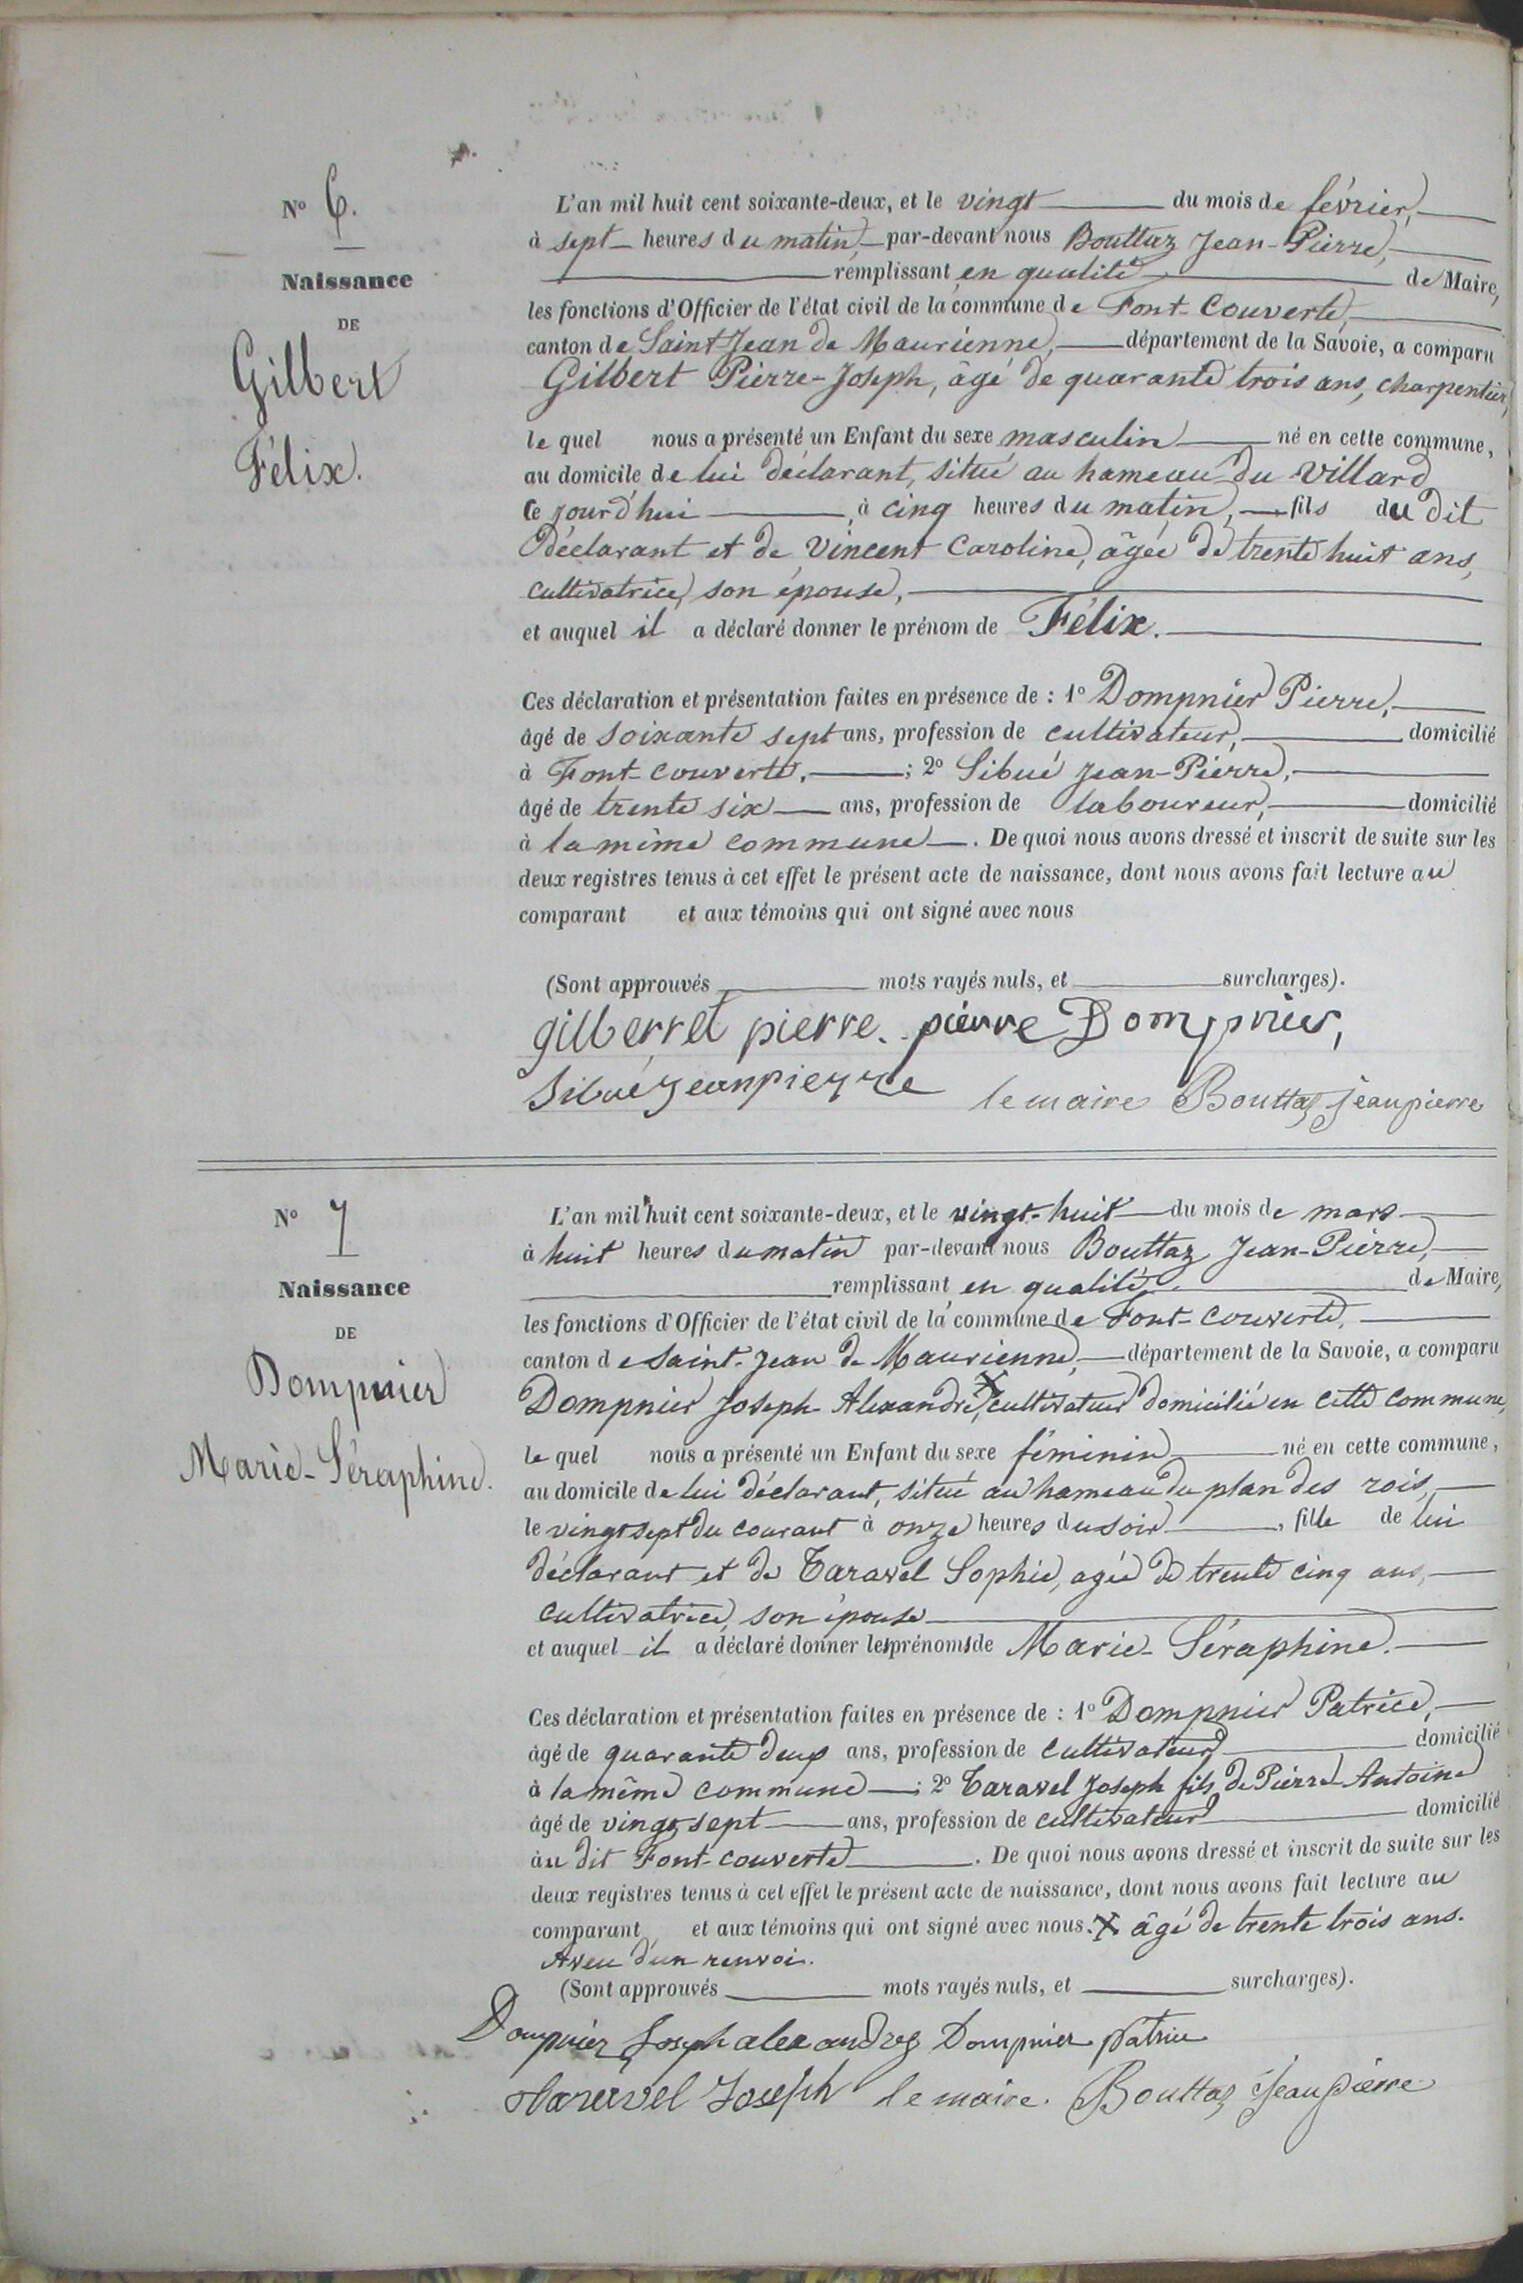 N° 6.
Naissance
DE
Gilbert
Félix.
L'an mil huit cent soixante-deux, et le vingt du mois de février,
à sept heures du matin, par-devant nous Bouttaz Jean-Pierre,
remplissant en qualité de Maire,
les fonctions d'Officier de l'état civil de la commune de Font-Couverte,
canton de Saint-Jean de Maurienne, département de la Savoie, a comparu
Gilbert Pierre-Joseph, âgé de quarante trois ans, charpentier,
le quel nous a présenté un Enfant du sexe masculin né en cette commune,
au domicile de lui déclarant, situé au hameau du Villard
Ce jourd'hui, à cinq heures du matin, fils du dit
déclarant et de Vincent Caroline, âgée de trente huit ans,
cultivatrice, son épouse,
et auquel il a déclaré donner le prénom de Félix.
Ces déclaration et présentation faites en présence de : 1° Dompnier Pierre,
âgé de soixante sept ans, profession de cultivateur, domicilié
à Font-couverte, ; 2° Sibué Jean-Pierre,
âgé de trente six ans, profession de laboureur, domicilié
à la même commune . De quoi nous avons dressé et inscrit de suite sur les
deux registres tenus à cet effet le présent acte de naissance, dont nous avons fait lecture au
comparant et aux témoins qui ont signé avec nous
(Sont approuvés mots rayés nuls, et surcharges).
gilberret pierre. pierre Dompnier,
Sibué jeanpierre le maire Bouttaz jeanpierre
N° 7
Naissance
DE
Dompnier
Marie-Séraphine.
L'an mil huit cent soixante-deux, et le vingt-huit du mois de mars
à huit heures du matin par-devant nous Bouttaz Jean-Pierre,
remplissant en qualité, de Maire,
les fonctions d'Officier de l'état civil de la commune de Font-Couverte,
canton de Saint-Jean de Maurienne, département de la Savoie, a comparu
Dompnier Joseph-Alexandre, X cultivateur domicilié en cette commune,
le quel nous a présenté un Enfant du sexe féminin né en cette commune,
au domicile de lui déclarant, situé au hameau du plan des rois,
le vingt sept du courant à onze heures du soir , fille de lui
déclarant et de Taravel Sophie, agée de trente cinq ans,
cultivatrice, son épouse
et auquel il a déclaré donner les prénoms de Marie-Séraphine.
Ces déclaration et présentation faites en présence de : 1° Dompnier Patrice,
âgé de quarante deux ans, profession de cultivateur domicilié
à la même commune ; 2° Taravel Joseph fils de Pierre-Antoine
âgé de vingt sept ans, profession de cultivateur domicilié
au dit Font-couverte . De quoi nous avons dressé et inscrit de suite sur les
deux registres tenus à cet effet le présent acte de naissance, dont nous avons fait lecture au
comparant et aux témoins qui ont signé avec nous. X âgé de trente trois ans.
Aveu d'un renvoi.
(Sont approuvés mots rayés nuls, et surcharges).
Dompnier Joseph alexandre Dompnier patrice
Taravel Joseph le maire. Bouttaz jean pierre